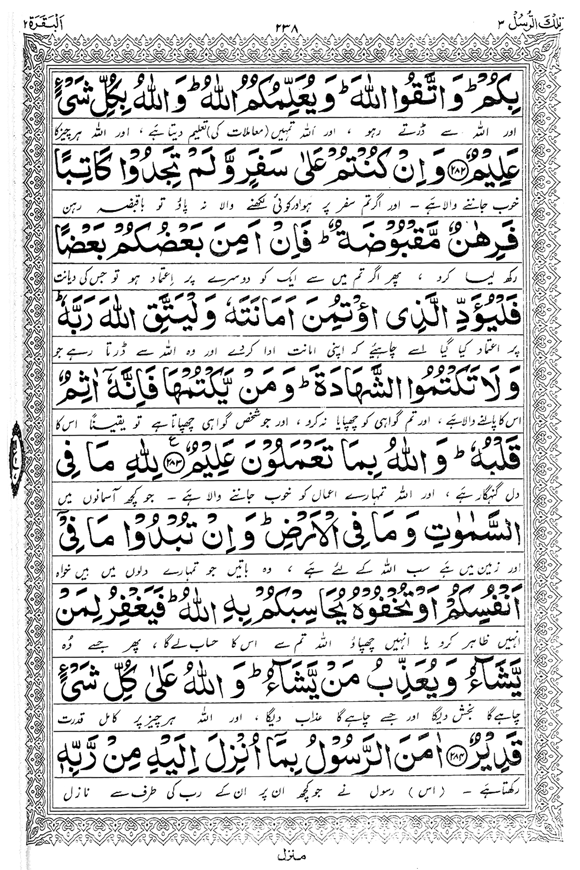 تِلْكَ الرُّسُلُ ٣ ٢٣٨ اَلْبَقَرَة ٢
بِكُمْ ؕ وَ اتَّقُوا اللّٰهَ ؕ وَ يُعَلِّمُكُمُ اللّٰهُ ؕ وَ اللّٰهُ بِكُلِّ شَىْءٍ
اور اللہ سے ڈرتے رہو ، اور اللہ تمہیں (معاملات کی) تعلیم دیتا ہے ، اور اللہ ہر چیز کا
عَلِيْمٌ ﴿۲۸۲﴾ وَ اِنْ كُنْتُمْ عَلٰى سَفَرٍ وَّ لَمْ تَجِدُوْا كَاتِبًا
خوب جاننے والا ہے ۔ اور اگر تم سفر پر ہو اور کوئی لکھنے والا نہ پاؤ تو باقبضہ رہن
فَرِهٰنٌ مَّقْبُوْضَةٌ ؕ فَاِنْ اَمِنَ بَعْضُكُمْ بَعْضًا
رکھ لیا کرو ، پھر اگر تم میں سے ایک کو دوسرے پر اعتماد ہو تو جس کی دیانت
فَلْيُؤَدِّ الَّذِى اؤْتُمِنَ اَمَانَتَهٗ وَ لْيَتَّقِ اللّٰهَ رَبَّهٗ ؕ
پر اعتماد کیا گیا اسے چاہیئے کہ اپنی امانت ادا کر دے اور وہ اللہ سے ڈرتا رہے جو
وَ لَا تَكْتُمُوا الشَّهَادَةَ ؕ وَ مَنْ يَّكْتُمْهَا فَاِنَّهٗۤ اٰثِمٌ
اس کا پالنے والا ہے ، اور تم گواہی کو چھپایا نہ کرو ، اور جو شخص گواہی چھپاتا ہے تو یقیناً اس کا
قَلْبُهٗ ؕ وَ اللّٰهُ بِمَا تَعْمَلُوْنَ عَلِيْمٌ ﴿۲۸۳﴾ ع لِلّٰهِ مَا فِى
دل گنہگار ہے ، اور اللہ تمہارے اعمال کو خوب جاننے والا ہے ۔ جو کچھ آسمانوں میں
السَّمٰوٰتِ وَ مَا فِى الْاَرْضِ ؕ وَ اِنْ تُبْدُوْا مَا فِىْۤ
اور زمین میں ہے سب اللہ کے لئے ہے ، وہ باتیں جو تمہارے دلوں میں ہیں خواہ
اَنْفُسِكُمْ اَوْ تُخْفُوْهُ يُحَاسِبْكُمْ بِهِ اللّٰهُ ؕ فَيَغْفِرُ لِمَنْ
انہیں ظاہر کرو یا انہیں چھپاؤ اللہ تم سے اس کا حساب لے گا ، پھر جسے وُہ
يَّشَآءُ وَ يُعَذِّبُ مَنْ يَّشَآءُ ؕ وَ اللّٰهُ عَلٰى كُلِّ شَىْءٍ
چاہے گا بخش دیگا اور جسے چاہے گا عذاب دیگا ، اور اللہ ہر چیز پر کامل قدرت
قَدِيْرٌ ﴿۲۸۴﴾ اٰمَنَ الرَّسُوْلُ بِمَاۤ اُنْزِلَ اِلَيْهِ مِنْ رَّبِّهٖ
رکھتا ہے ۔ (اس) رسول نے جو کچھ ان پر ان کے رب کی طرف سے نازل
منزل